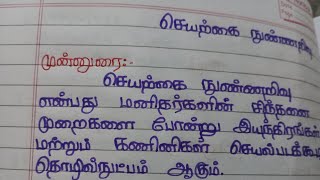 செயற்கை நுண்ணறிவு
முன்னுரை:-
செயற்கை நுண்ணறிவு
என்பது மனிதர்களின் சிந்தனை
முறைகளை போன்று இயந்திரங்கள்
மற்றும் கணினிகள் செயல்படக்கூடிய
தொழில்நுட்பம் ஆகும்.